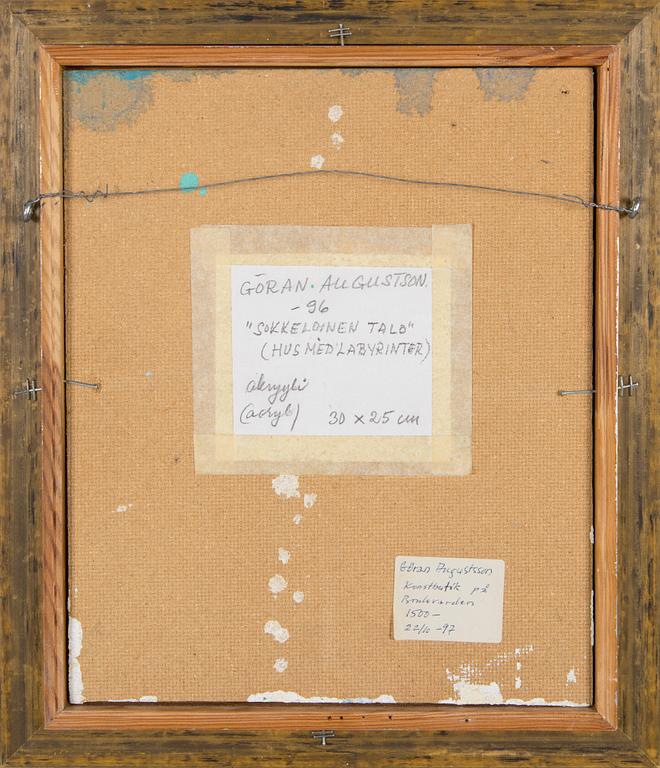 GÖRAN. AUGUSTSON.
-96
"SOKKELOINEN TALO"
(HUS MED LABYRINTER)
akryyli
(acryl) 30 x 25 cm
Göran Augustsson
Konstbutik på
Boulevarden
1500-
22/10 -97